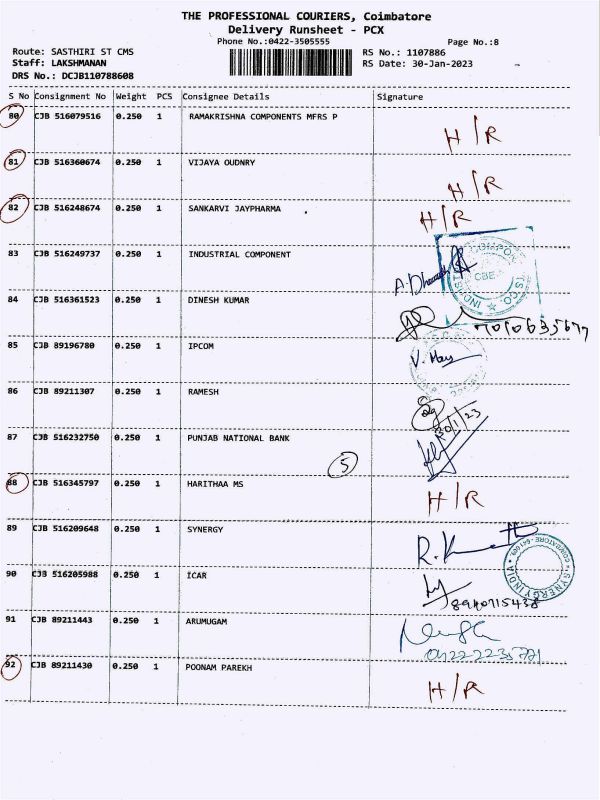 THE PROFESSIONAL COURIERS, Coimbatore
Delivery Runsheet - PCX
Phone No.:0422-3505555 Page No.:8
Route: SASTHIRI ST CMS RS No.: 1107886
Staff: LAKSHMANAN RS Date: 30-Jan-2023
DRS No.: DCJB110788608
S No Consignment No Weight PCS Consignee Details Signature
80 CJB 516079516 0.250 1 RAMAKRISHNA COMPONENTS MFRS P
H/R
81 CJB 516360674 0.250 1 VIJAYA OUDNRY
H/R
82 CJB 516248674 0.250 1 SANKARVI JAYPHARMA
H/R
83 CJB 516249737 0.250 1 INDUSTRIAL COMPONENT
CBE
84 CJB 516361523 0.250 1 DINESH KUMAR
85 CJB 89196780 0.250 1 IPCOM
86 CJB 89211307 0.250 1 RAMESH
30/1/23
87 CJB 516232750 0.250 1 PUNJAB NATIONAL BANK
5
88 CJB 516345797 0.250 1 HARITHAA MS
H/R
89 CJB 516209648 0.250 1 SYNERGY
SYNERGY INDIA
90 CJB 516205988 0.250 1 ICAR
91 CJB 89211443 0.250 1 ARUMUGAM
92 CJB 89211430 0.250 1 POONAM PAREKH
H/R